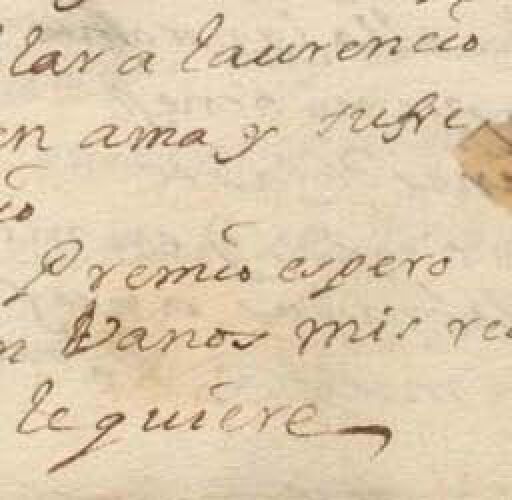 llar a laurencio
en ama y sufre
io
Premio espero
n Vanos mis rec
le quiere